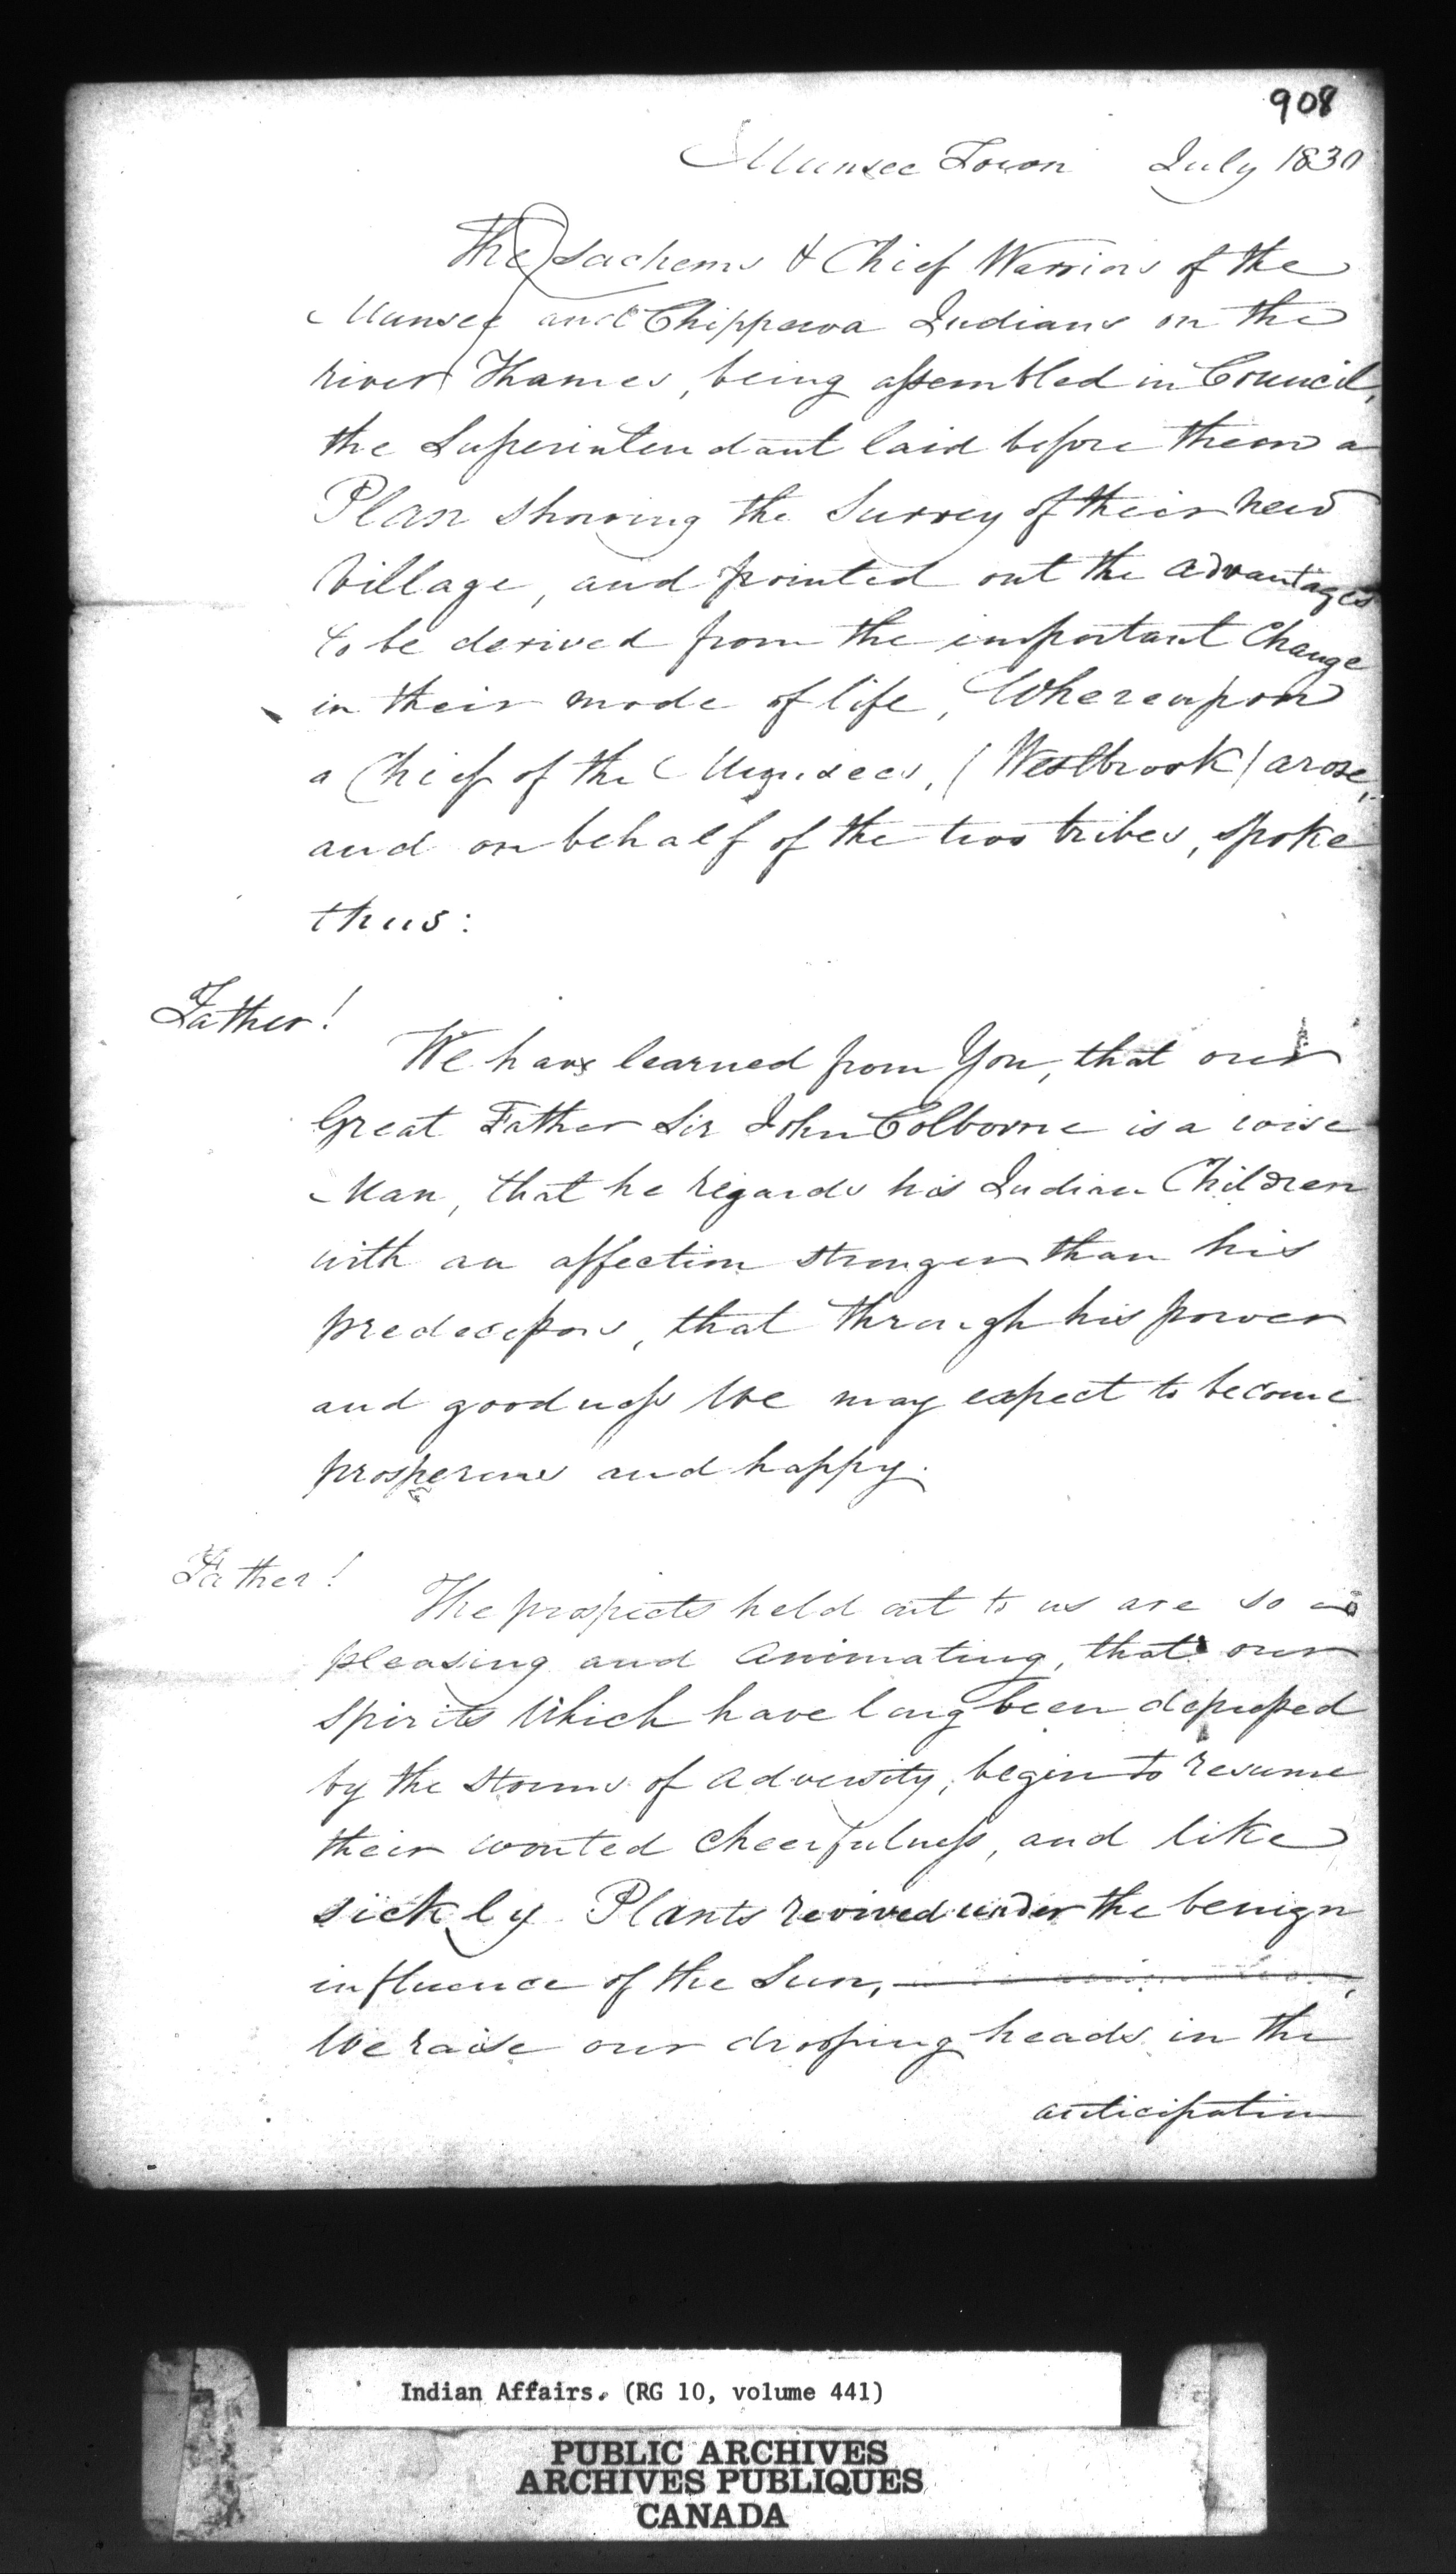 908
Munsee Town July 1830
The Sachems & Chief Warriors of the
Munsee and Chippewa Indians on the
river Thames, being assembled in Council,
the Superintendant laid before them a
Plan showing the Survey of their new
Village, and pointed out the advantages
to be derived from the important Change
in their mode of life, Whereupon
a Chief of the Munsees, (Westbrook) arose,
and on behalf of the two tribes, spoke
thus:
Father!
We have learned from You, that our
Great Father Sir John Colborne is a wise
Man, that he regards his Indian Children
with an affection stronger than his
predecessors, that through his power
and goodness We may expect to become
prosperous and happy.
Father!
The prospects held out to us are so
pleasing and animating, that our
Spirits Which have long been depressed
by the storms of adversity, begin to resume
their wonted cheerfulness, and like
sickly Plants revived under the benign
influence of the Sun,
We raise our drooping heads in the
anticipation
Indian Affairs. (RG 10, volume 441)
PUBLIC ARCHIVES
ARCHIVES PUBLIQUES
CANADA